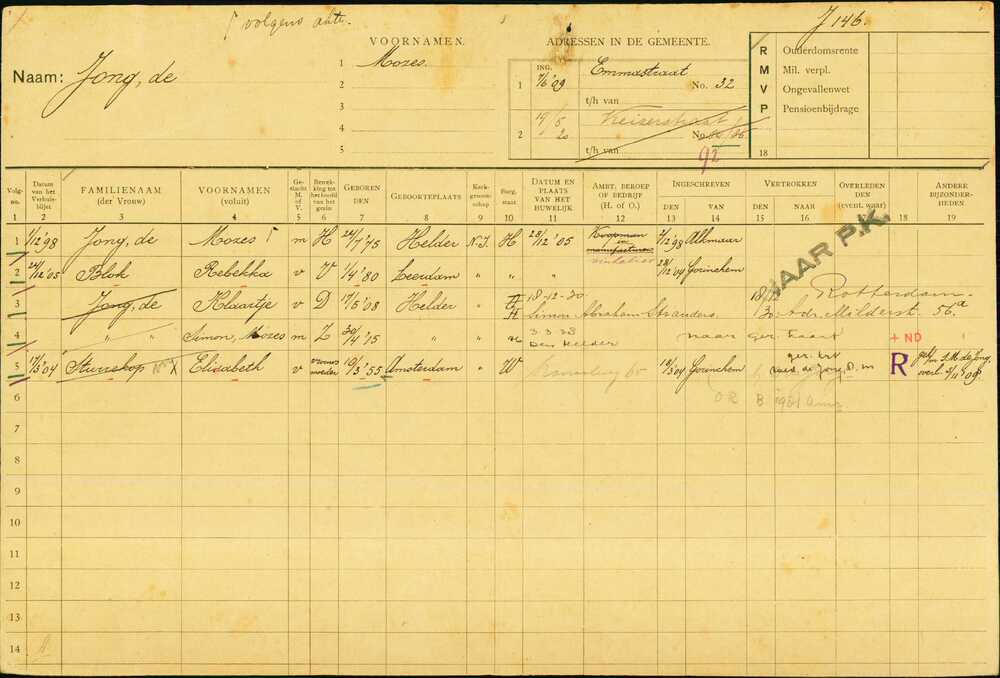 volgens akte.
J 146.
Naam: Jong, de
VOORNAMEN.
1 Mozes.
2
3
4
5
ADRESSEN IN DE GEMEENTE.
1 ING. 1/6 '09 Emmastraat No. 32
t/h van
2 19/5 20 Keizerstraat No. 86
t/h van
92
R Ouderdomsrente
M Mil. verpl.
V Ongevallenwet
P Pensioenbijdrage
18
Volg-no. Datum van het Verhuis-biljet FAMILIENAAM (der Vrouw) VOORNAMEN (voluit) Ge-slacht M. of V. Betrek-king tot het hoofd van het gezin GEBOREN DEN GEBOORTEPLAATS Kerk-genoot-schap Burg. staat DATUM EN PLAATS VAN HET HUWELIJK AMBT, BEROEP OF BEDRIJF (H. of O.) INGESCHREVEN DEN VAN VERTROKKEN DEN NAAR OVERLEDEN DEN (event. waar) ANDERE BIJZONDER-HEDEN
1 2 3 4 5 6 7 8 9 10 11 12 13 14 15 16 17 18 19
NAAR P.K.
1 1/12 '98 Jong, de Mozes m H 24/7 '75 Helder N.I. H 28/12 '05 Koopman in manufacturen 1/12 '98 Alkmaar
2 24/12 '05 Blok Rebekka v V 1/4 '80 Leerdam " " " 28/12 '04 Gorinchem
3 Jong, de Klaartje v D 17/5 '08 Helder " H 18-12-30 Simon Abraham Stranders. 30 Rotterdam Adr. Milderst. 56a
4 " " Simon, Mozes m Z 30/4 '15 " " H 3-3-38 Den Helder naar gez. kaart + ND
5 17/3 '04 Sturrekop Elisabeth v schoonmoeder 19/3 '55 Amsterdam " W 18/3 04 Gorinchem ger. krt wed. de Jong, D. m R geh/m S.M. de Jong. overl. 2/11 '09
O R B 1921
6
7
8
9
10
11
12
13
14